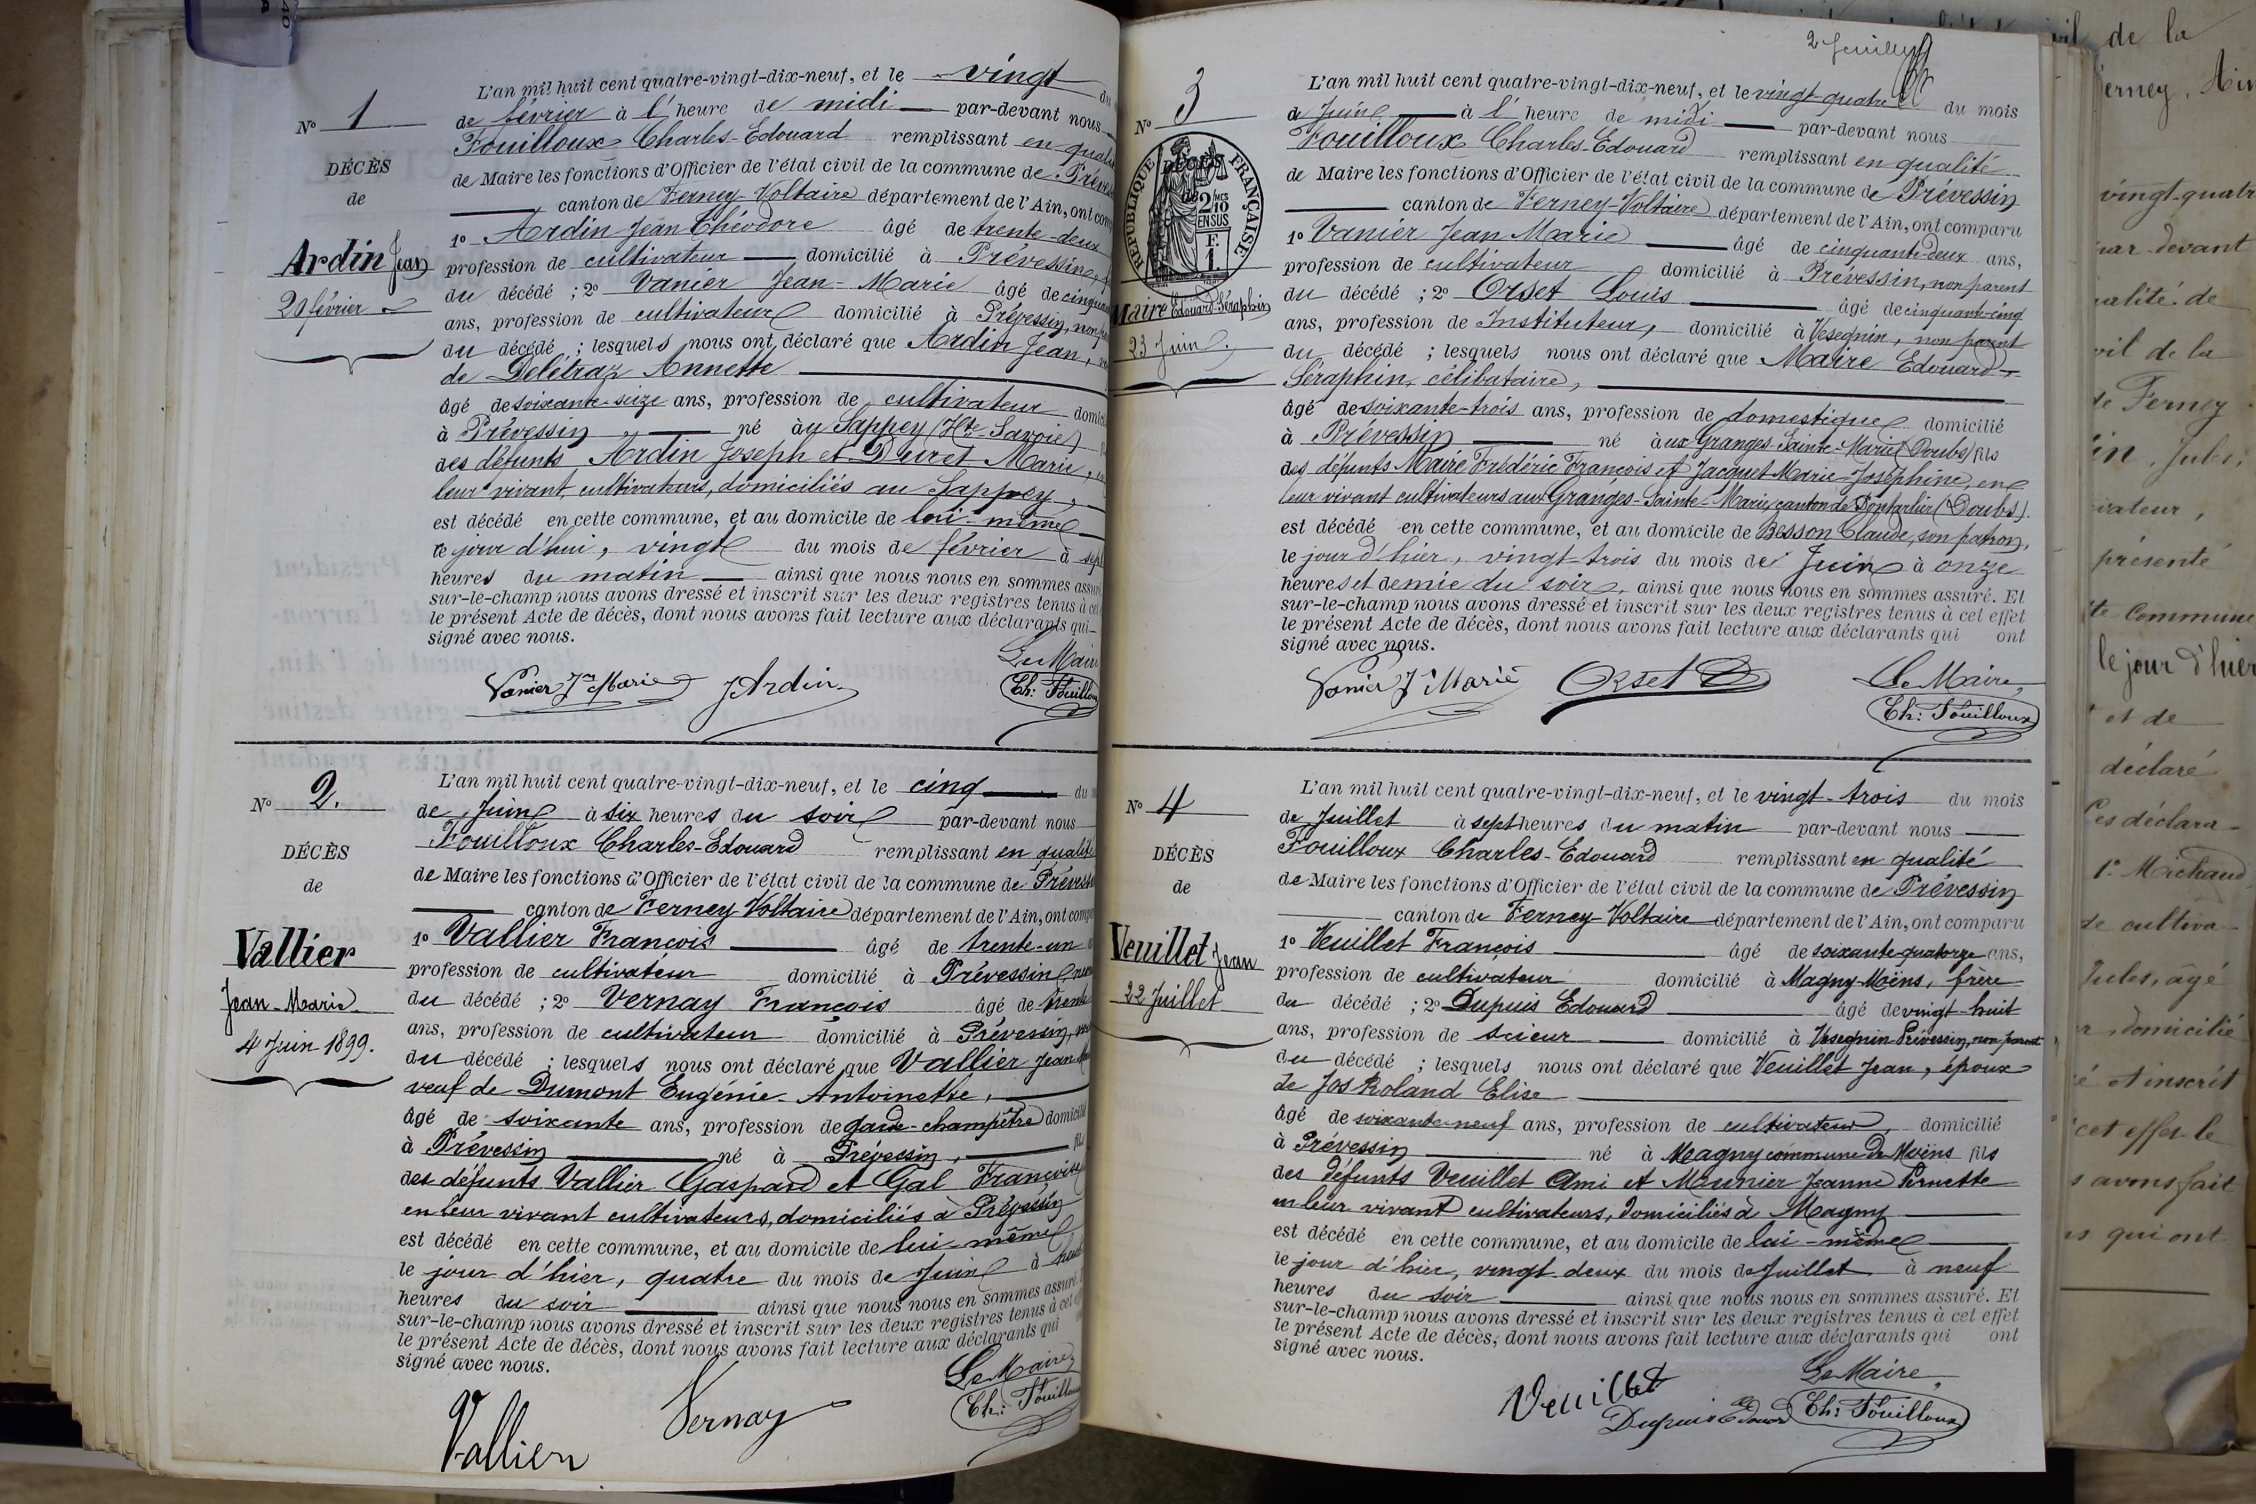 N° 1
DÉCÈS
de
Ardin Jean
20 février
L'an mil huit cent quatre-vingt-dix-neuf, et le vingt du
de février à l'heure de midi par-devant nous
Fouilloux Charles-Edouard remplissant en
de Maire les fonctions d'Officier de l'état civil de la commune de
canton de Ferney-Voltaire département de l'Ain, ont
1° Ardin Jean Théodore âgé de trente-deux
profession de cultivateur domicilié à Prévessin,
du décédé ; 2° Vanier Jean-Marie âgé de
ans, profession de cultivateur domicilié à Prévessin, non
du décédé ; lesquels nous ont déclaré que Ardin Jean,
de Delétraz Annette
âgé de soixante-seize ans, profession de cultivateur
à Prévessin né au Sappey (Hte Savoie)
des défunts Ardin Joseph et Duret Marie,
leur vivant cultivateurs, domiciliés au Sappey,
est décédé en cette commune, et au domicile de lui-même
ce jour d'hui, vingt du mois de février à sept
heures du matin ainsi que nous nous en sommes
sur-le-champ nous avons dressé et inscrit sur les deux registres tenus à
le présent Acte de décès, dont nous avons fait lecture aux déclarants qui
signé avec nous.
Le Maire
Vanier Jn Marie J Ardin Ch: Fouilloux
N° 2.
DÉCÈS
de
Vallier
Jean-Marie
4 Juin 1899.
L'an mil huit cent quatre-vingt-dix-neuf, et le cinq du
de Juin à six heures du soir par-devant nous
Fouilloux Charles-Edouard remplissant en qualité
de Maire les fonctions d'Officier de l'état civil de la commune de
canton de Ferney-Voltaire département de l'Ain, ont
1° Vallier François âgé de trente-un
profession de cultivateur domicilié à Prévessin
du décédé ; 2° Vernay François âgé de trente
ans, profession de cultivateur domicilié à Prévessin,
du décédé ; lesquels nous ont déclaré que Vallier Jean
veuf de Dumont Eugénie-Antoinette,
âgé de soixante ans, profession de garde-champêtre domicilié
à Prévessin né à Prévessin, fils
des défunts Vallier Gaspard et Gal
en leur vivant cultivateurs, domiciliés à Prévessin
est décédé en cette commune, et au domicile de lui-même
le jour d'hier, quatre du mois de Juin à
heures du soir ainsi que nous nous en sommes assuré.
sur-le-champ nous avons dressé et inscrit sur les deux registres tenus à cet
le présent Acte de décès, dont nous avons fait lecture aux déclarants qui
signé avec nous.
Le Maire
Vallier Vernay Ch: Fouilloux
2
N° 3
RÉPUBLIQUE FRANÇAISE
DÉCÈS
de
2/10
EN SUS
Maire Edouard-Séraphin
23 Juin
L'an mil huit cent quatre-vingt-dix-neuf, et le vingt-quatre du mois
de Juin à l'heure de midi par-devant nous
Fouilloux Charles-Edouard remplissant en qualité
de Maire les fonctions d'Officier de l'état civil de la commune de Prévessin
canton de Ferney-Voltaire département de l'Ain, ont comparu
1° Vanier Jean Marie âgé de cinquante-deux ans,
profession de cultivateur domicilié à Prévessin, non parent
du décédé ; 2° Orset Louis âgé de cinquante-cinq
ans, profession de Instituteur, domicilié à Vesegnin, non parent
du décédé ; lesquels nous ont déclaré que Maire Edouard-
Séraphin, célibataire,
âgé de soixante-trois ans, profession de domestique domicilié
à Prévessin né aux Granges-Sainte-Marie (Doubs) fils
des défunts Maire Frédéric François et Jacquet Marie-Joséphine, en
leur vivant cultivateurs aux Granges-Sainte-Marie, canton de Pontarlier (Doubs).
est décédé en cette commune, et au domicile de Besson Claude, son patron,
le jour d'hier, vingt-trois du mois de Juin à onze
heures et demie du soir, ainsi que nous nous en sommes assuré. Et
sur-le-champ nous avons dressé et inscrit sur les deux registres tenus à cet effet
le présent Acte de décès, dont nous avons fait lecture aux déclarants qui ont
signé avec nous.
Vanier Jn Marie Orset Le Maire,
Ch: Fouilloux
N° 4
DÉCÈS
de
Veuillet Jean
22 Juillet
L'an mil huit cent quatre-vingt-dix-neuf, et le vingt-trois du mois
de Juillet à sept heures du matin par-devant nous
Fouilloux Charles-Edouard remplissant en qualité
de Maire les fonctions d'Officier de l'état civil de la commune de Prévessin
canton de Ferney-Voltaire département de l'Ain, ont comparu
1° Veuillet François âgé de soixante-quatorze ans,
profession de cultivateur domicilié à Magny-Moëns, frère
du décédé ; 2° Dupuis Edouard âgé de vingt-huit
ans, profession de scieur domicilié à Vesegnin-Prévessin, non parent
du décédé ; lesquels nous ont déclaré que Veuillet Jean, époux
de Jos Roland Elise
âgé de soixante-neuf ans, profession de cultivateur, domicilié
à Prévessin né à Magny commune de Moëns fils
des défunts Veuillet Ami et Meunier Jeanne Pernette
en leur vivant cultivateurs, domiciliés à Magny
est décédé en cette commune, et au domicile de lui-même
le jour d'hier, vingt-deux du mois de Juillet à neuf
heures du soir ainsi que nous nous en sommes assuré. Et
sur-le-champ nous avons dressé et inscrit sur les deux registres tenus à cet effet
le présent Acte de décès, dont nous avons fait lecture aux déclarants qui ont
signé avec nous.
Le Maire,
Veuillet Dupuis Edouard Ch: Fouilloux
de la
vingt-quatr
devant
de
vil de la
de Ferney
présenté
commune
le jour d'hier
et de
déclaré
1° Michaud
de cultiva-
Jules, âgé
domicilié
et inscrit
cet effet le
avons fait
qui ont